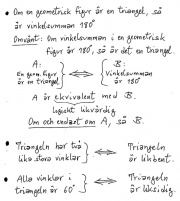 • Om en geometrisk figur är en triangel, så
är vinkelsumman 180°
Omvänt: Om vinkelsumman i en geometrisk
figur är 180°, så är det en triangel.
A: B:
En geom. figur är en triangel ⟺ Vinkelsumman är 180°
A är ekvivalent med B.
logiskt likvärdig
Om och endast om A, så B.
• Triangeln har två lika stora vinklar ⟺ Triangeln är likbent.
• Alla vinklar i triangeln är 60° ⟺ Triangeln är liksidig.